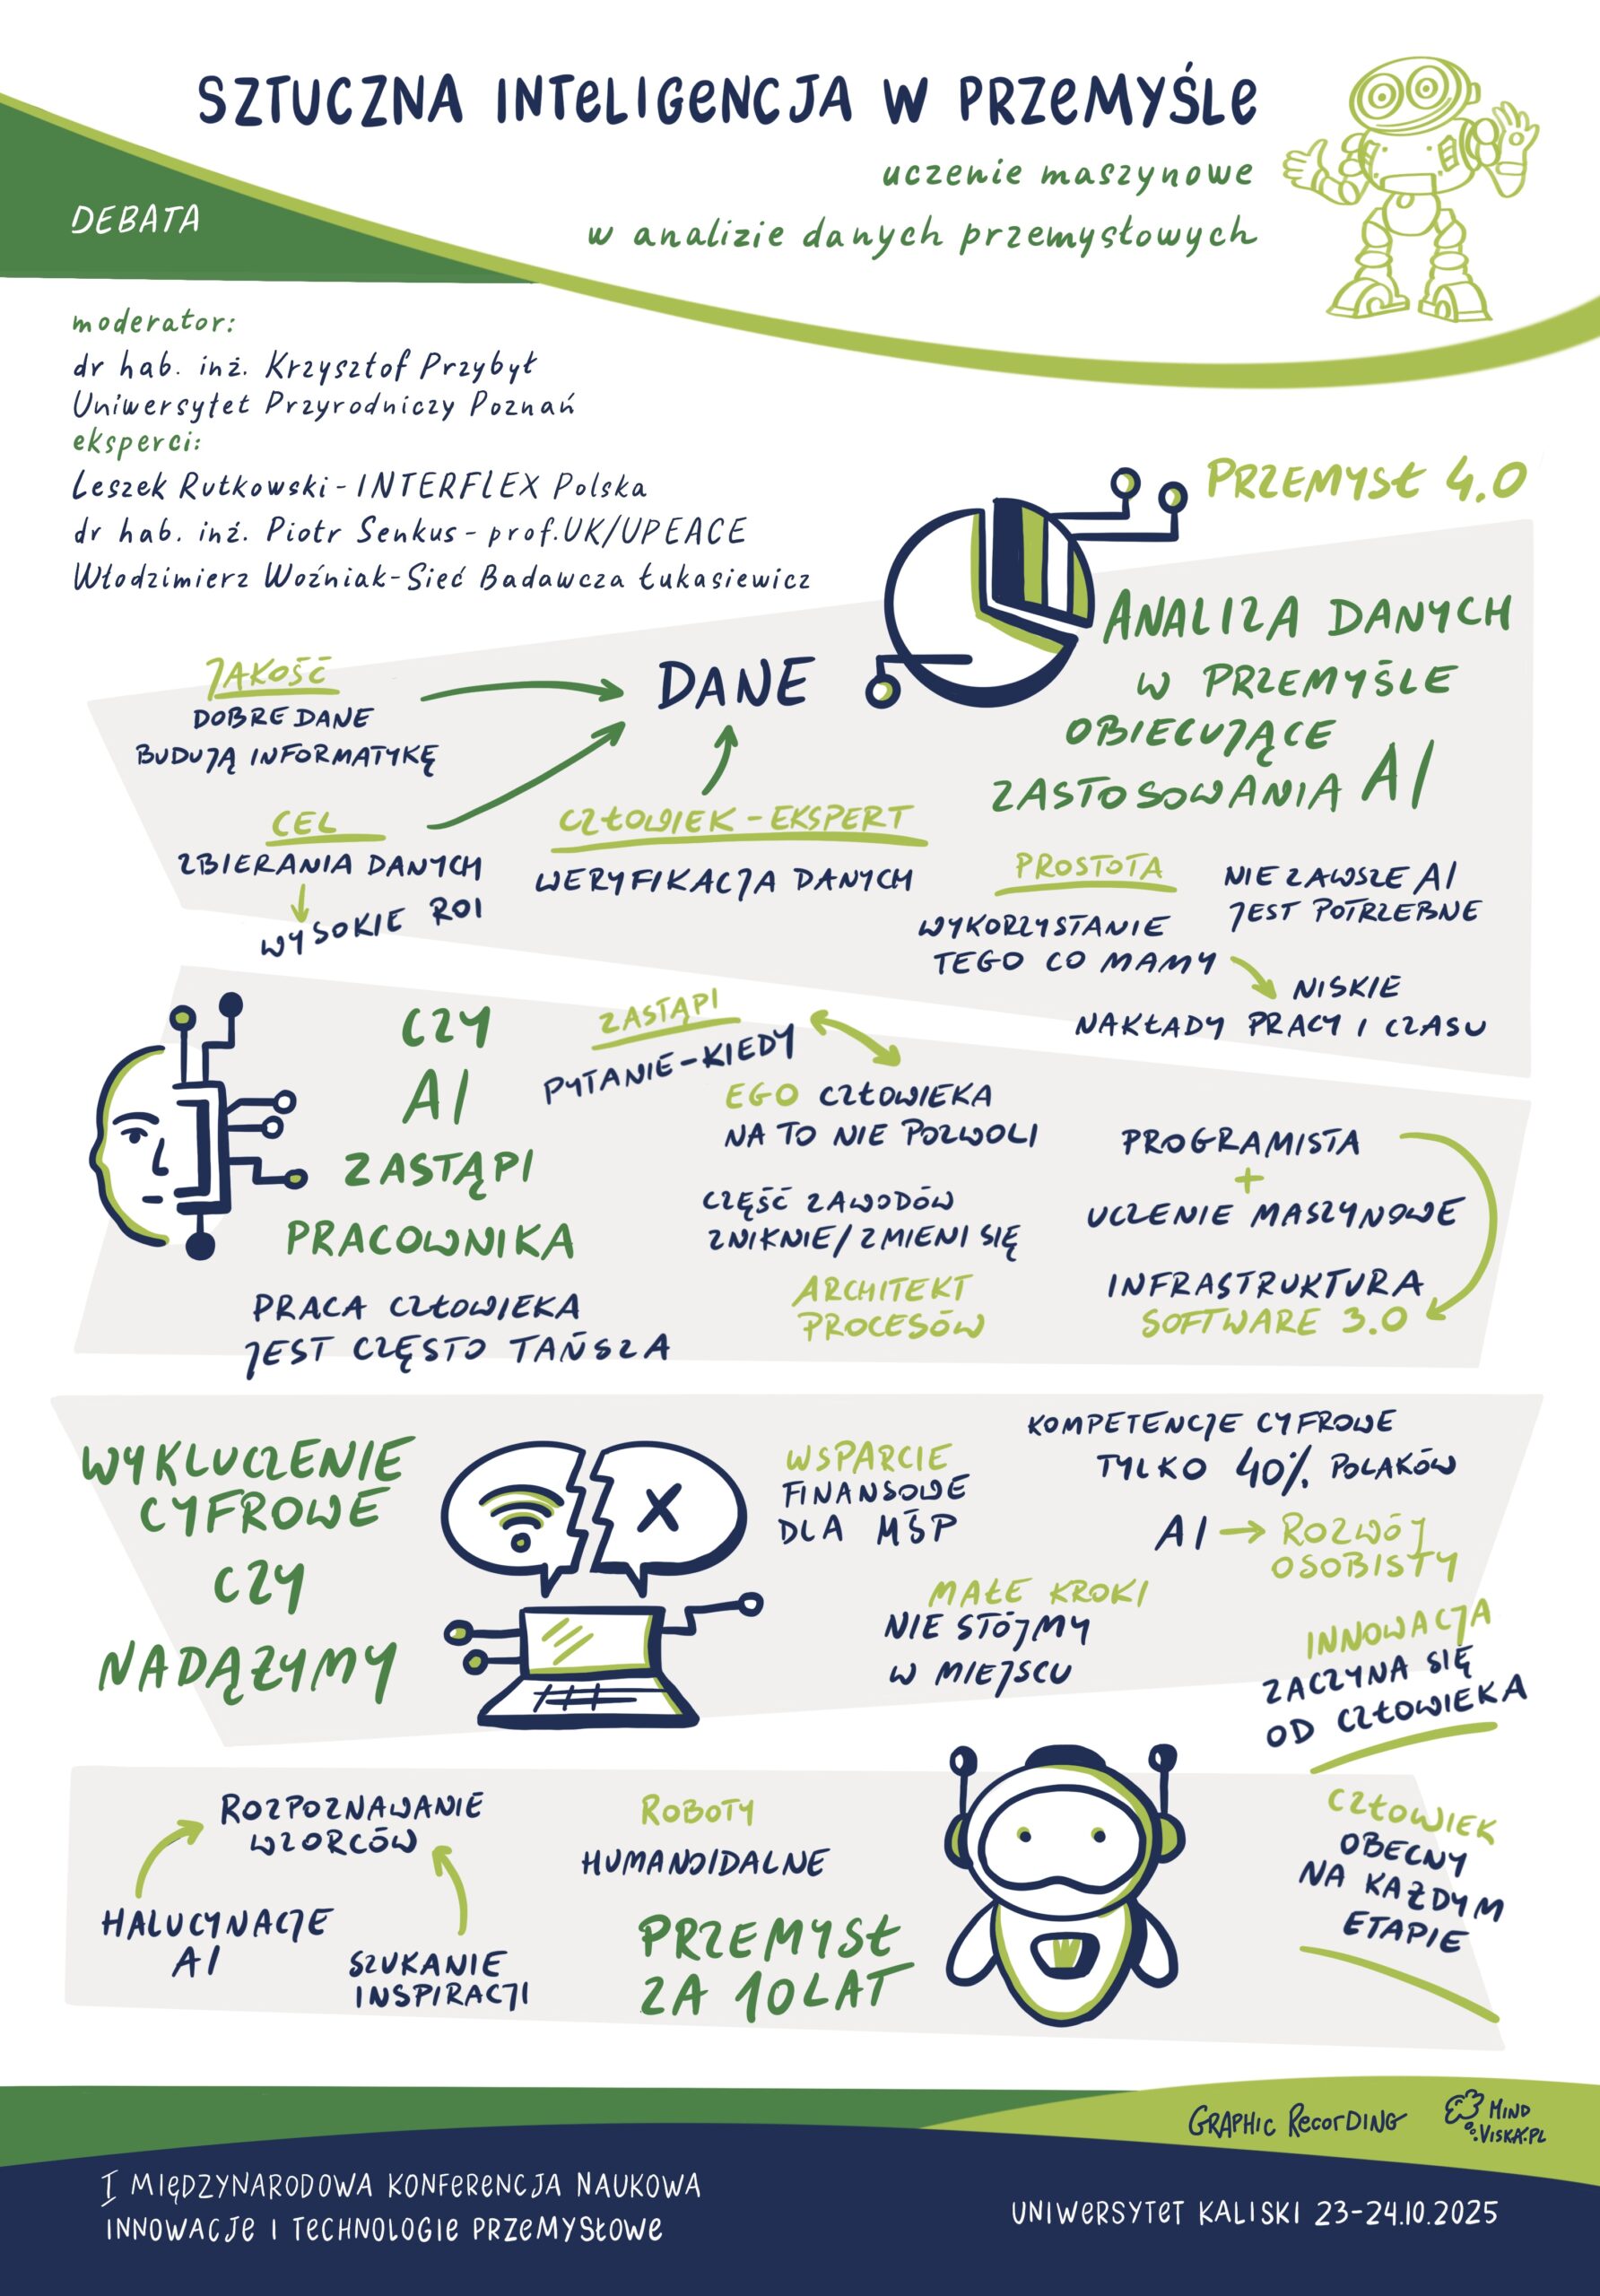 SZTUCZNA INTELIGENCJA W PRZEMYŚLE
uczenie maszynowe
w analizie danych przemysłowych
DEBATA
moderator:
dr hab. inż. Krzysztof Przybył
Uniwersytet Przyrodniczy Poznań
eksperci:
Leszek Rutkowski - INTERFLEX Polska
dr hab. inż. Piotr Senkus - prof. UK/UPEACE
Włodzimierz Woźniak - Sieć Badawcza Łukasiewicz
PRZEMYSŁ 4.0
ANALIZA DANYCH
W PRZEMYŚLE
OBIECUJĄCE
ZASTOSOWANIA AI
JAKOŚĆ
DOBRE DANE
BUDUJĄ INFORMATYKĘ
DANE
CEL
ZBIERANIA DANYCH
WYSOKIE ROI
CZŁOWIEK - EKSPERT
WERYFIKACJA DANYCH
PROSTOTA
WYKORZYSTANIE
TEGO CO MAMY
NIE ZAWSZE AI
JEST POTRZEBNE
NISKIE
NAKŁADY PRACY I CZASU
CZY
AI
ZASTĄPI
PRACOWNIKA
PRACA CZŁOWIEKA
JEST CZĘSTO TAŃSZA
ZASTĄPI
PYTANIE - KIEDY
EGO CZŁOWIEKA
NA TO NIE POZWOLI
CZĘŚĆ ZAWODÓW
ZNIKNIE/ZMIENI SIĘ
ARCHITEKT
PROCESÓW
PROGRAMISTA
+
UCZENIE MASZYNOWE
INFRASTRUKTURA
SOFTWARE 3.0
WYKLUCZENIE
CYFROWE
CZY
NADĄŻYMY
WSPARCIE
FINANSOWE
DLA MŚP
KOMPETENCJE CYFROWE
TYLKO 40% POLAKÓW
AI → ROZWÓJ
OSOBISTY
MAŁE KROKI
NIE STÓJMY
W MIEJSCU
INNOWACJA
ZACZYNA SIĘ
OD CZŁOWIEKA
ROZPOZNAWANIE
WZORCÓW
HALUCYNACJE
AI
SZUKANIE
INSPIRACJI
ROBOTY
HUMANOIDALNE
PRZEMYSŁ
ZA 10 LAT
CZŁOWIEK
OBECNY
NA KAŻDYM
ETAPIE
GRAPHIC RECORDING
MIND
VISKA.PL
I MIĘDZYNARODOWA KONFERENCJA NAUKOWA
INNOWACJE I TECHNOLOGIE PRZEMYSŁOWE
UNIWERSYTET KALISKI 23-24.10.2025